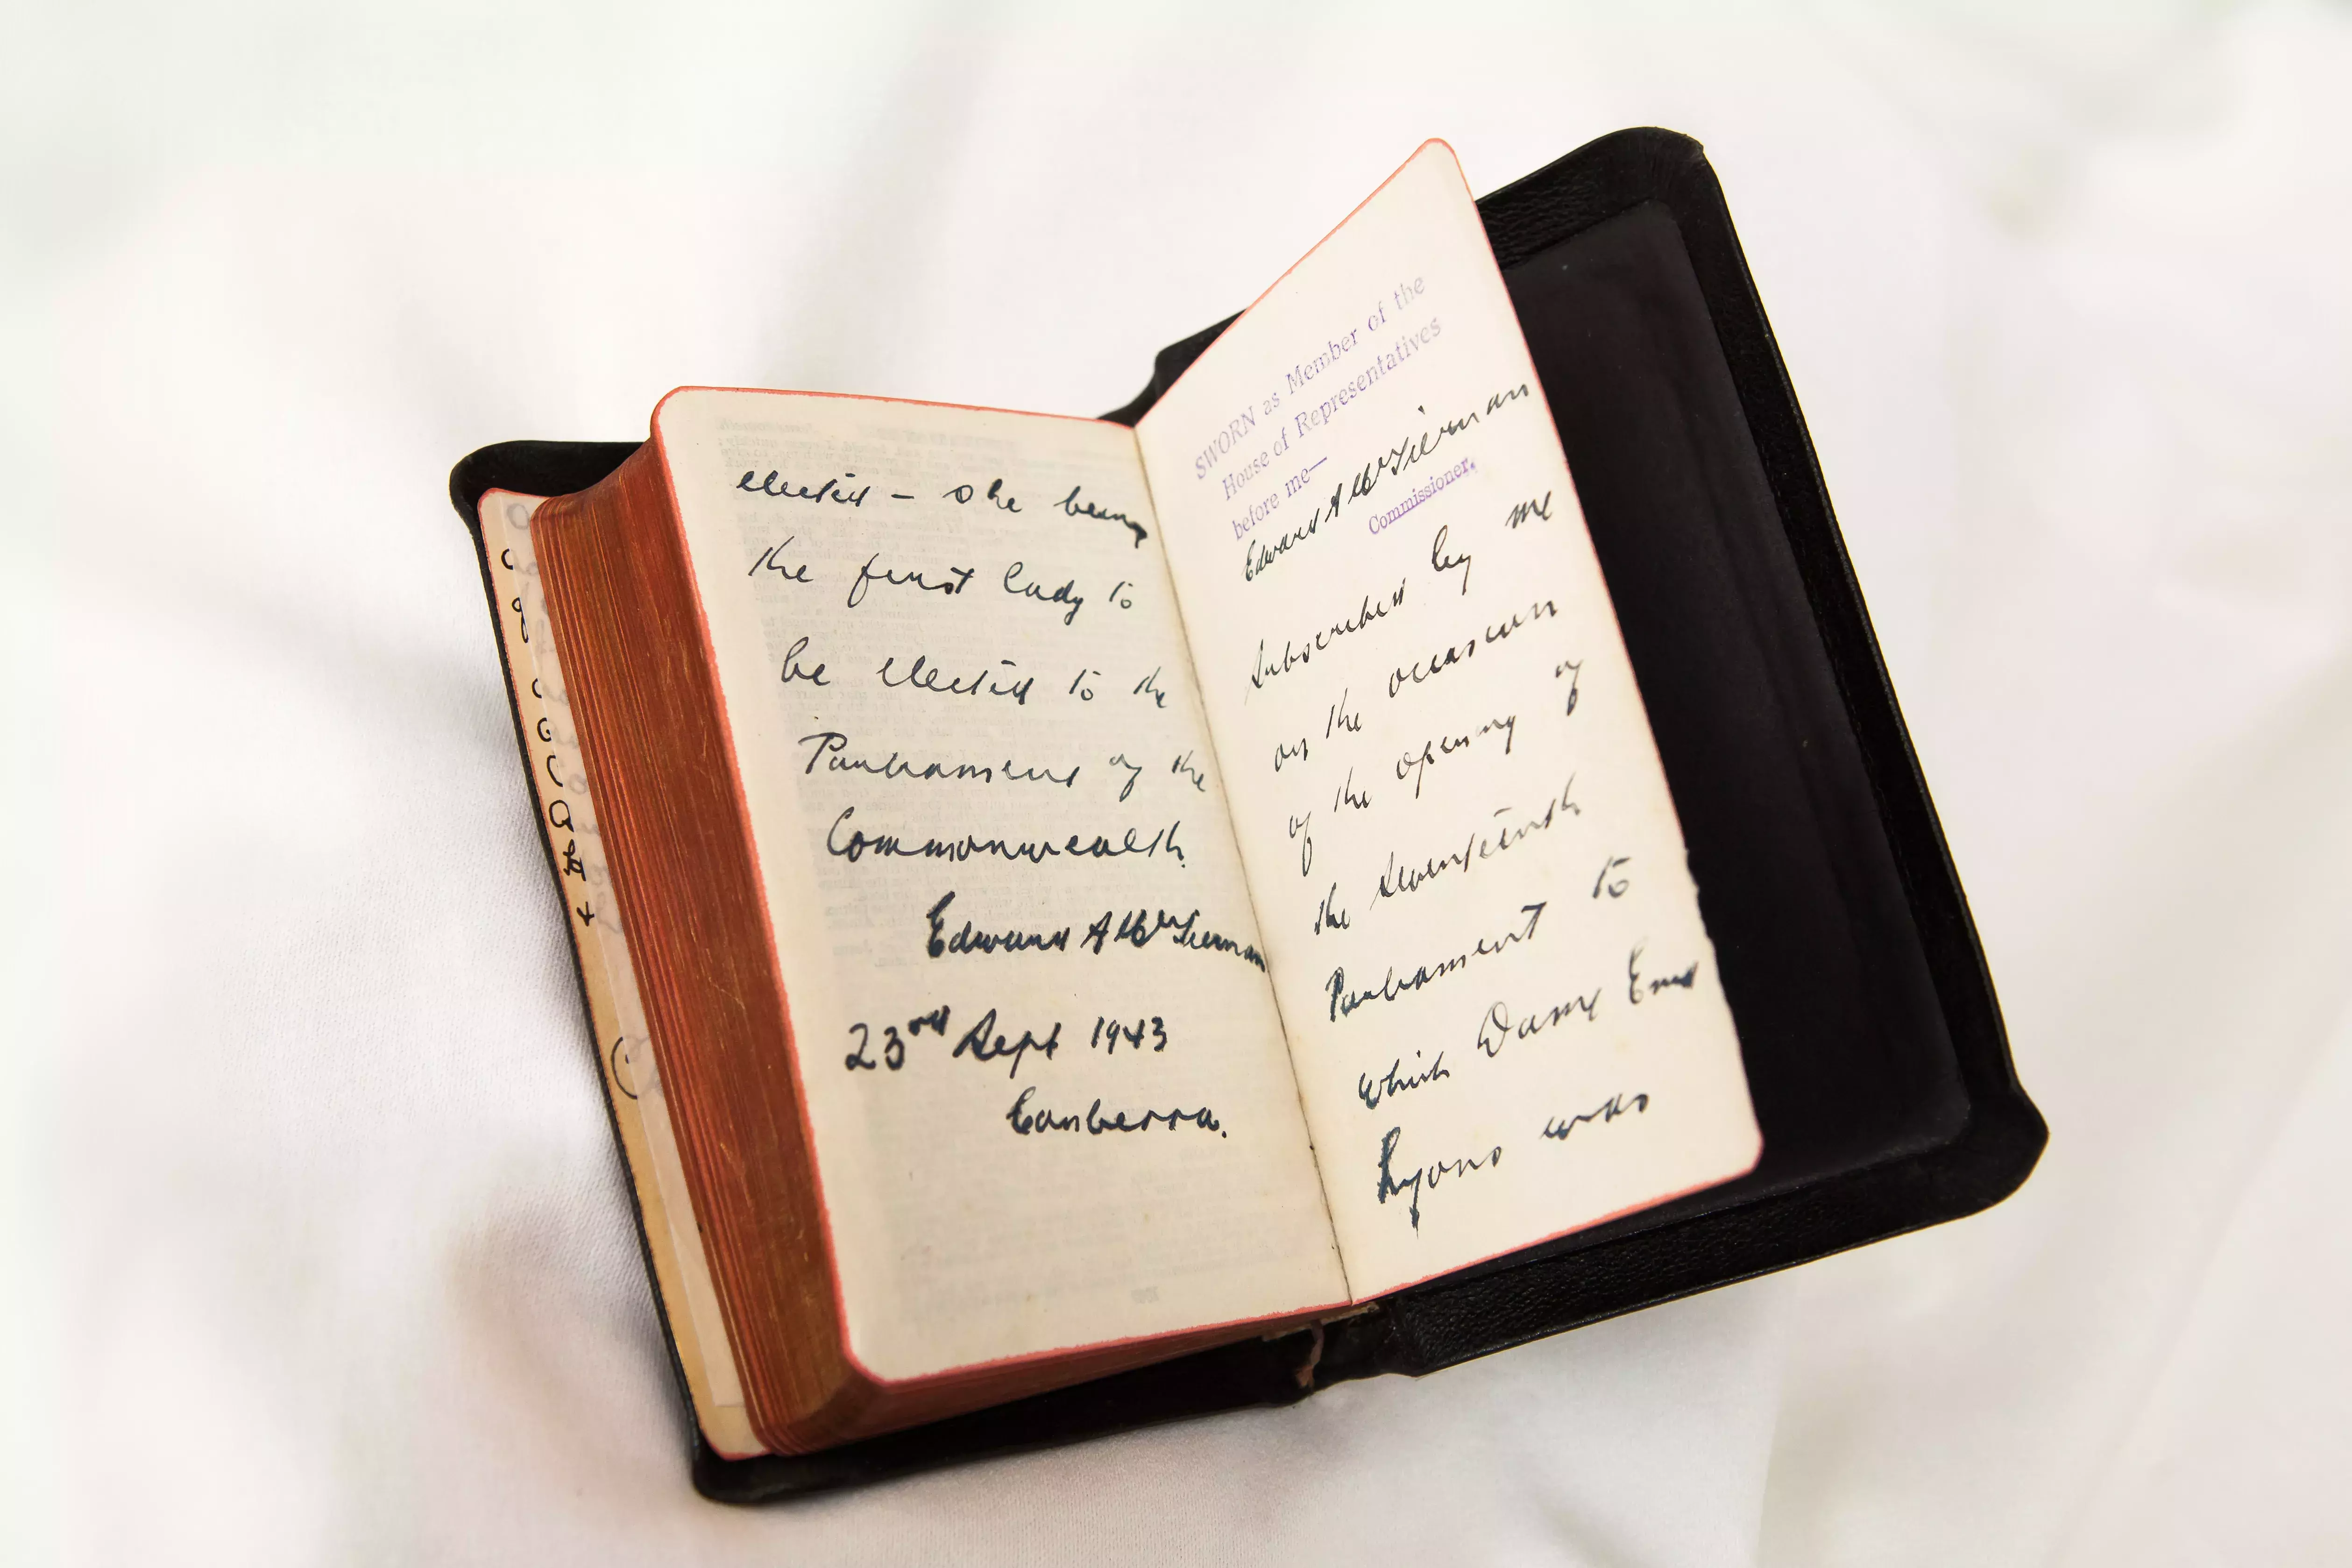 elected – she being
the first lady to
be elected to the
Parliament of the
Commonwealth.
Edward A McTiernan
23rd Sept 1943
Canberra.
SWORN as Member of the
House of Representatives
before me—
Edward A McTiernan
Commissioner.
Subscribed by me
on the occasion
of the opening of
the Seventeenth
Parliament to
which Dame Enid
Lyons was